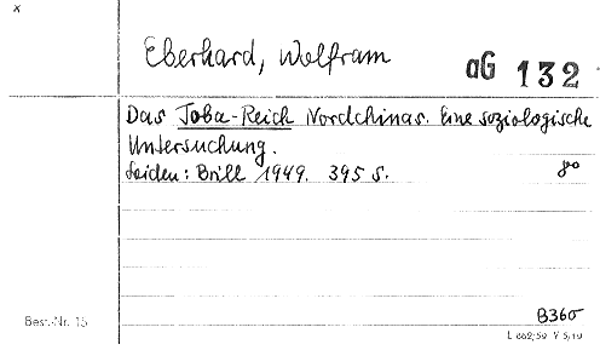 x
Eberhard, Wolfram
aG 132
Das Toba-Reich Nordchinas. Eine soziologische
Untersuchung.
Leiden: Brill 1949. 395 S.
8°
B36
Best.-Nr. 15
L 662/59 V 5/19